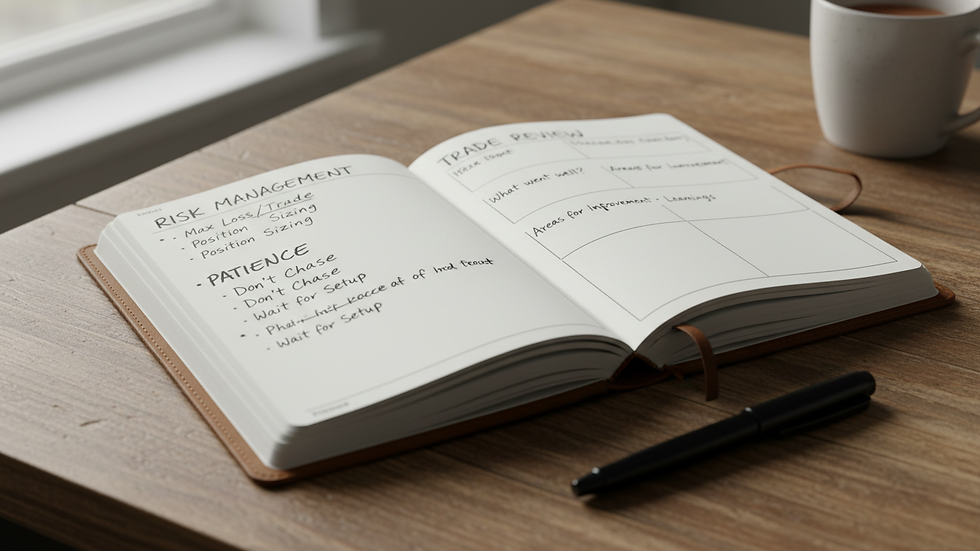 RISK MANAGEMENT
- - Max Loss/Trade
- Position Sizing
- Position Sizing
- PATIENCE
- Don't Chase
- Don't Chase
- Wait for Setup
- of
- Wait for Setup
TRADE REVIEW
What went well?
Areas for Improvement
Areas for Improvement - Learnings